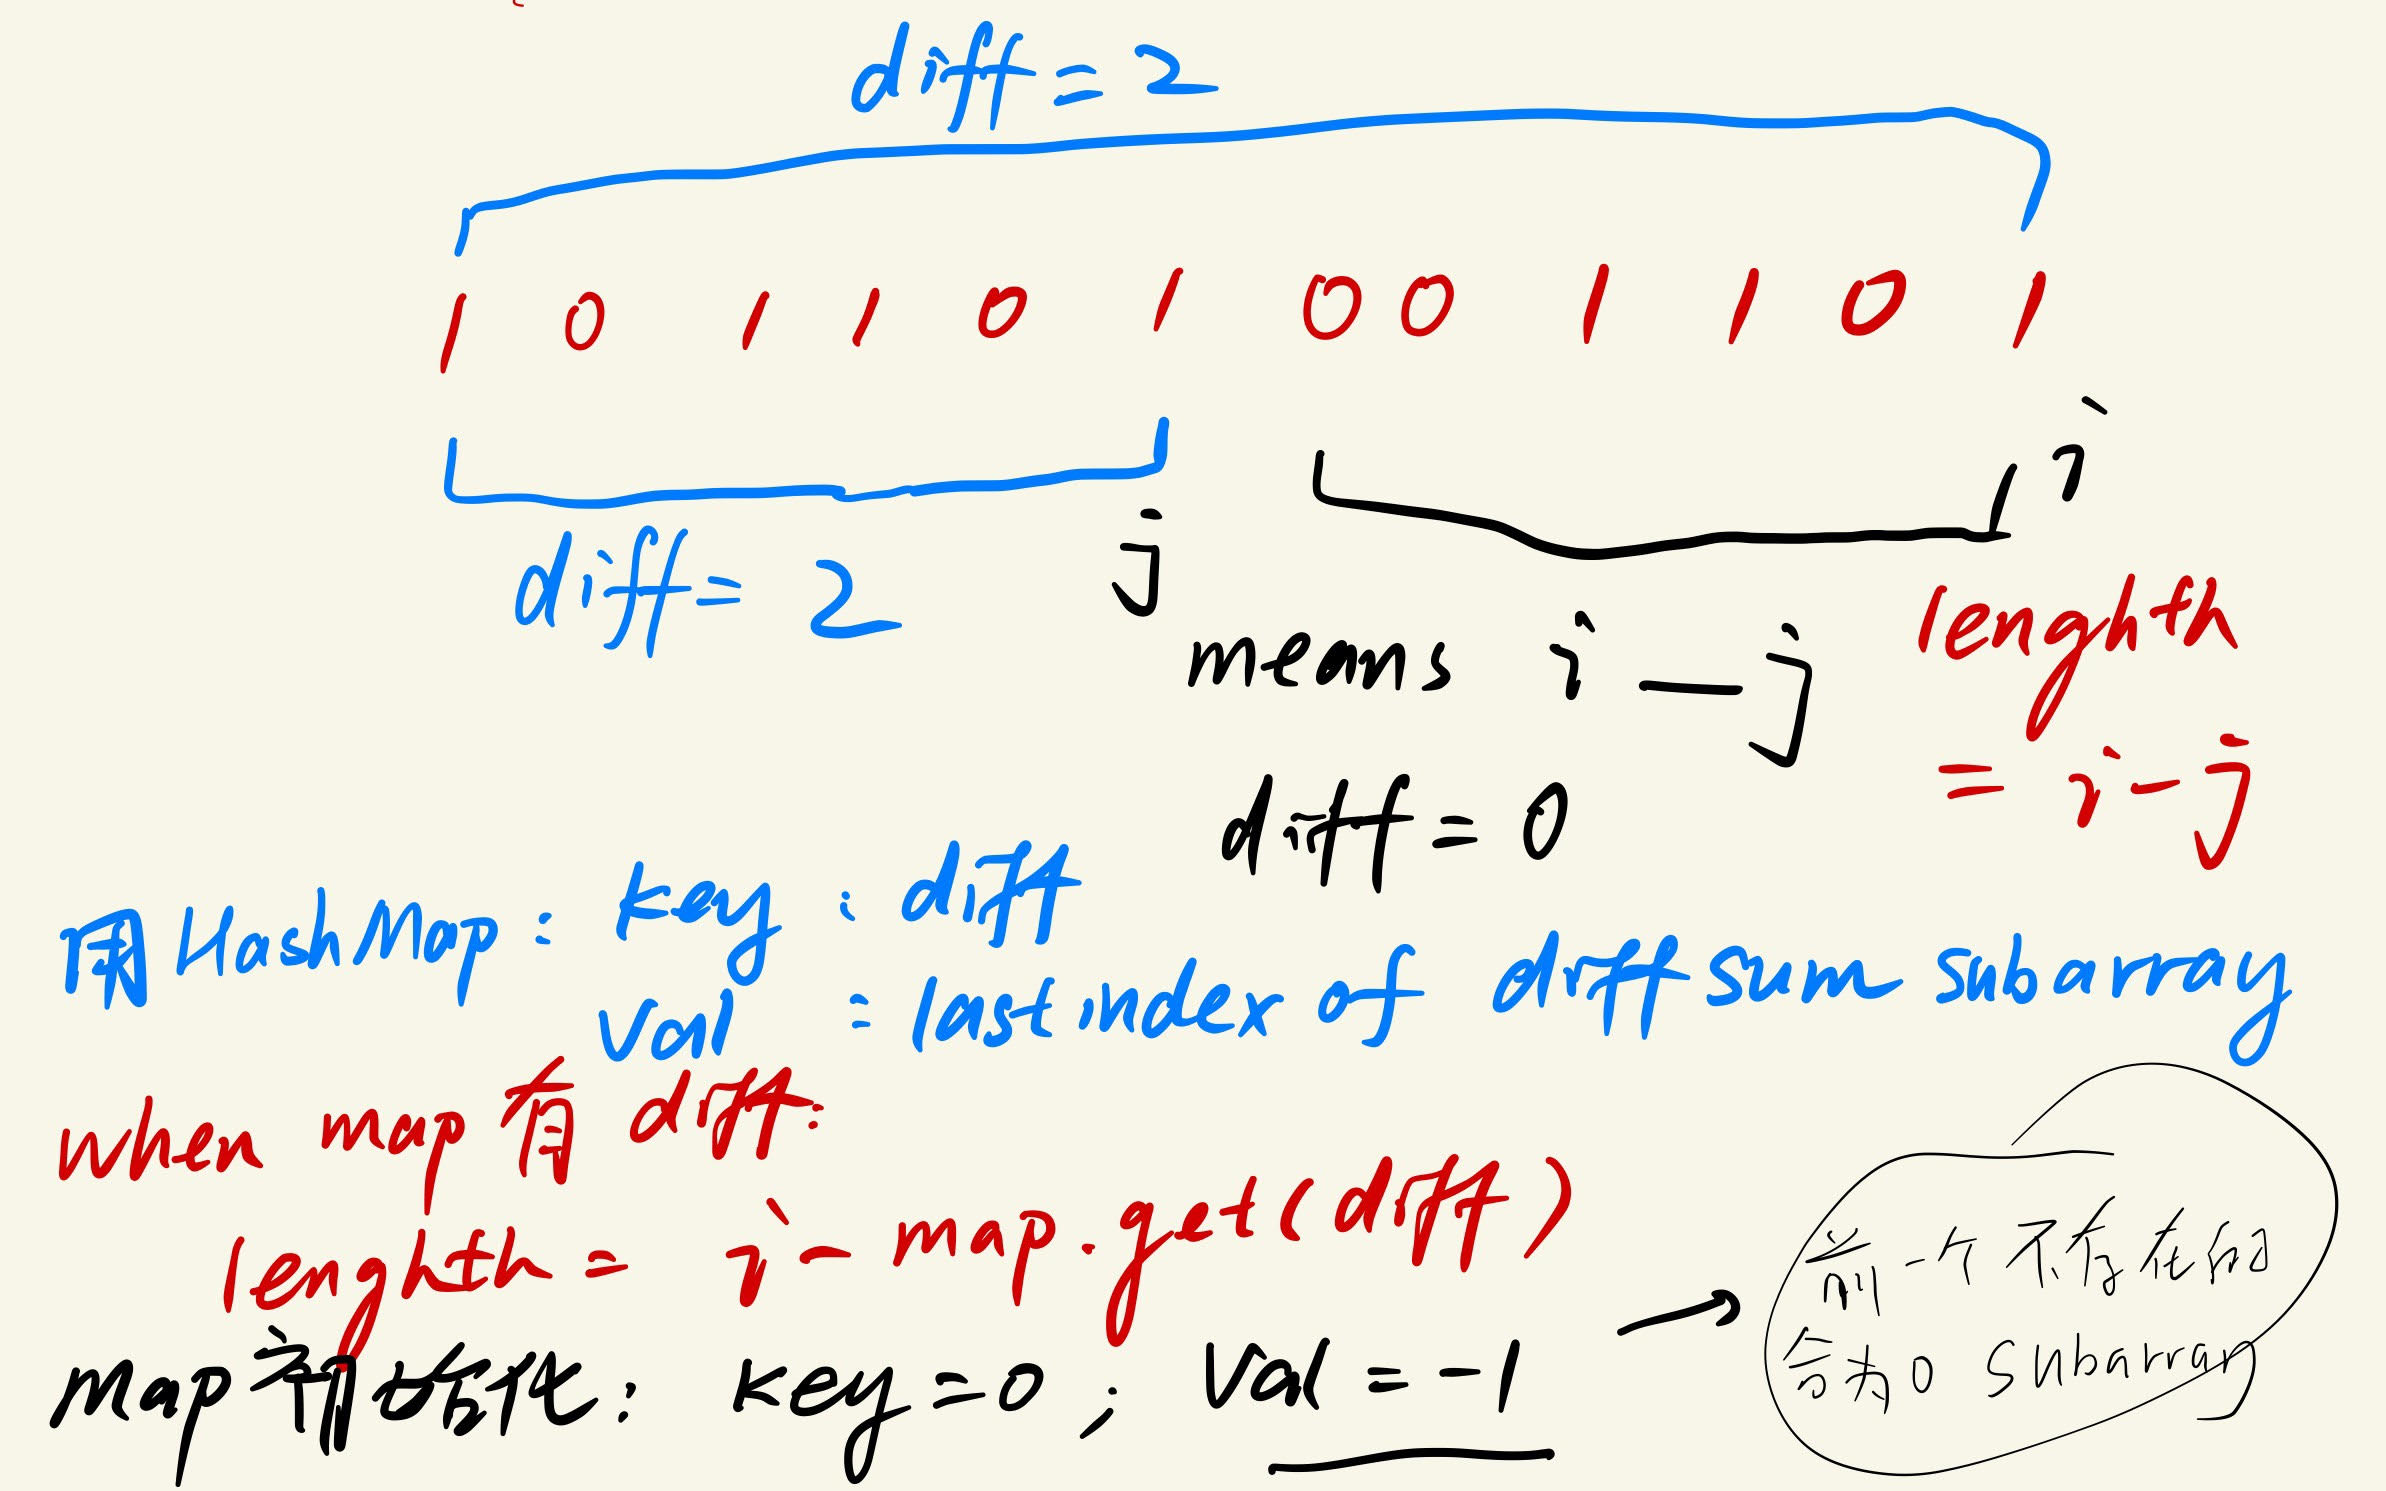 diff = 2
1 0 1 1 0 1 0 0 1 1 0 1
i
diff = 2
j
means i — j
lenghth
= i - j
diff = 0
用HashMap : key : diff
val : last index of diff sum subarray
when map 有 diff :
lenghth = i - map.get(diff)
map 初始化 : key = 0 ; val = -1
前一个不存在的
合为0 subarray